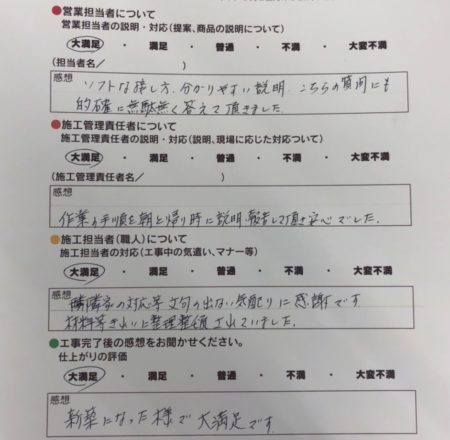 ●営業担当者について
営業担当者の説明・対応(提案、商品の説明について)
大満足 ・ 満足 ・ 普通 ・ 不満 ・ 大変不満
(担当者名/ )
感想
ソフトな接し方、分かりやすい説明、こちらの質問にも
的確に無駄無く答えて頂きました。
●施工管理責任者について
施工管理責任者の説明・対応(説明、現場に応じた対応ついて)
大満足 ・ 満足 ・ 普通 ・ 不満 ・ 大変不満
(施工管理責任者名/ )
感想
作業の手順を朝と帰り時に説明、報告して頂き安心でした。
●施工担当者(職人)について
施工担当者の対応(工事中の気遣い、マナー等)
大満足 ・ 満足 ・ 普通 ・ 不満 ・ 大変不満
感想
隣家の対応等文句の出ない気配りに感謝です
材料等きれいに整理整頓されていました。
●工事完了後の感想をお聞かせください。
仕上がりの評価
大満足 ・ 満足 ・ 普通 ・ 不満 ・ 大変不満
感想
新築になった様で大満足です。